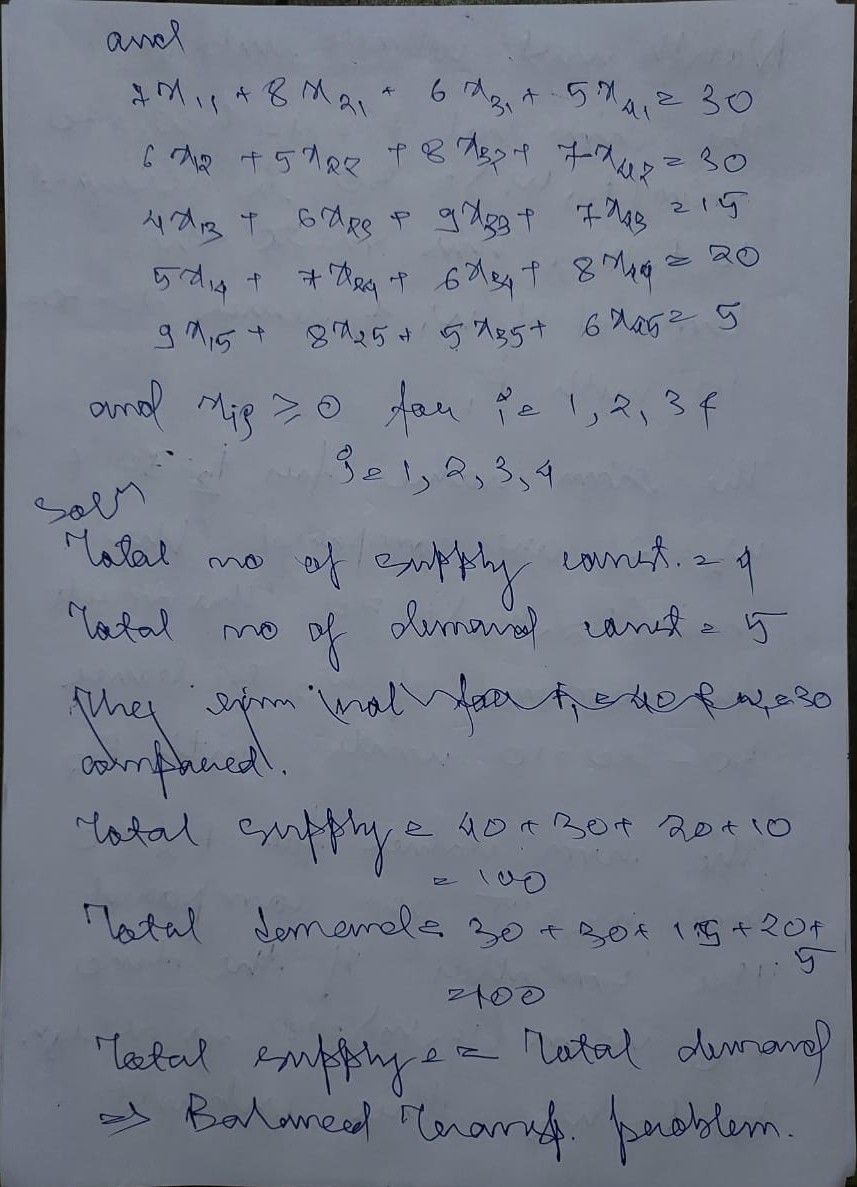 and
7x₁₁ + 8x₂₁ + 6x₃₁ + 5x₄₁ = 30
6x₁₂ + 5x₂₂ + 8x₃₂ + 7x₄₂ = 30
4x₁₃ + 6x₂₃ + 9x₃₃ + 7x₄₃ = 15
5x₁₄ + 7x₂₄ + 6x₃₄ + 8x₄₄ = 20
9x₁₅ + 8x₂₅ + 5x₃₅ + 6x₄₅ = 5
and xij ≥ 0 for i = 1, 2, 3 &
j = 1, 2, 3, 4
Solⁿ
Total no of supply const. = 4
Total no of demand const = 5
= 40 & = 30
compared.
Total supply = 40 + 30 + 20 + 10
= 100
Total demand = 30 + 30 + 15 + 20 +
5
= 100
Total supply = = Total demand
⇒ Balanced Transp. problem.